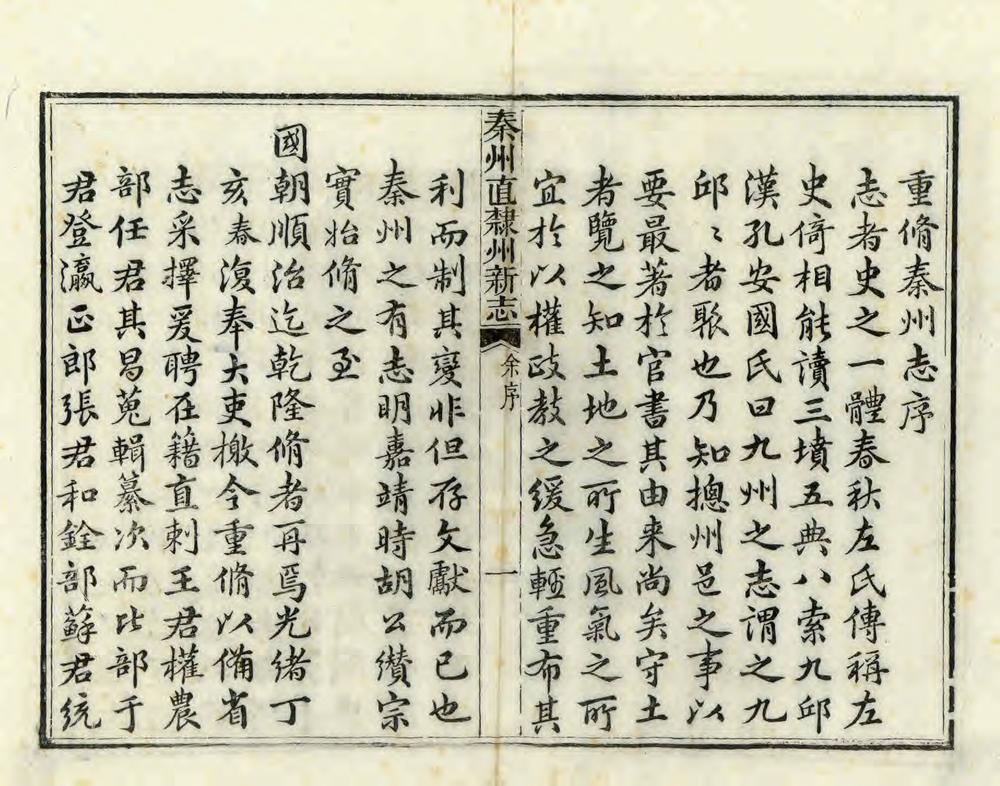 重脩秦州志序
志者史之一體春秋左氏傳稱左
史倚相能讀三墳五典八索九邱
漢孔安國氏曰九州之志謂之九
邱邱者聚也乃知摠州邑之事以
要最著於官書其由来尚矣守土
者覽之知土地之所生風氣之所
宜於以權政教之緩急輕重布其
秦州直隸州新志
余序
一
利而制其變非但存文獻而已也
秦州之有志明嘉靖時胡公纘宗
實始脩之至
國朝順治迄乾隆脩者再焉光緒丁
亥春復奉大吏檄令重脩以備省
志采擇爰聘在籍直刺王君權農
部任君其昌蒐輯纂次而比部于
君登瀛正郎張君和銓部蘇君統